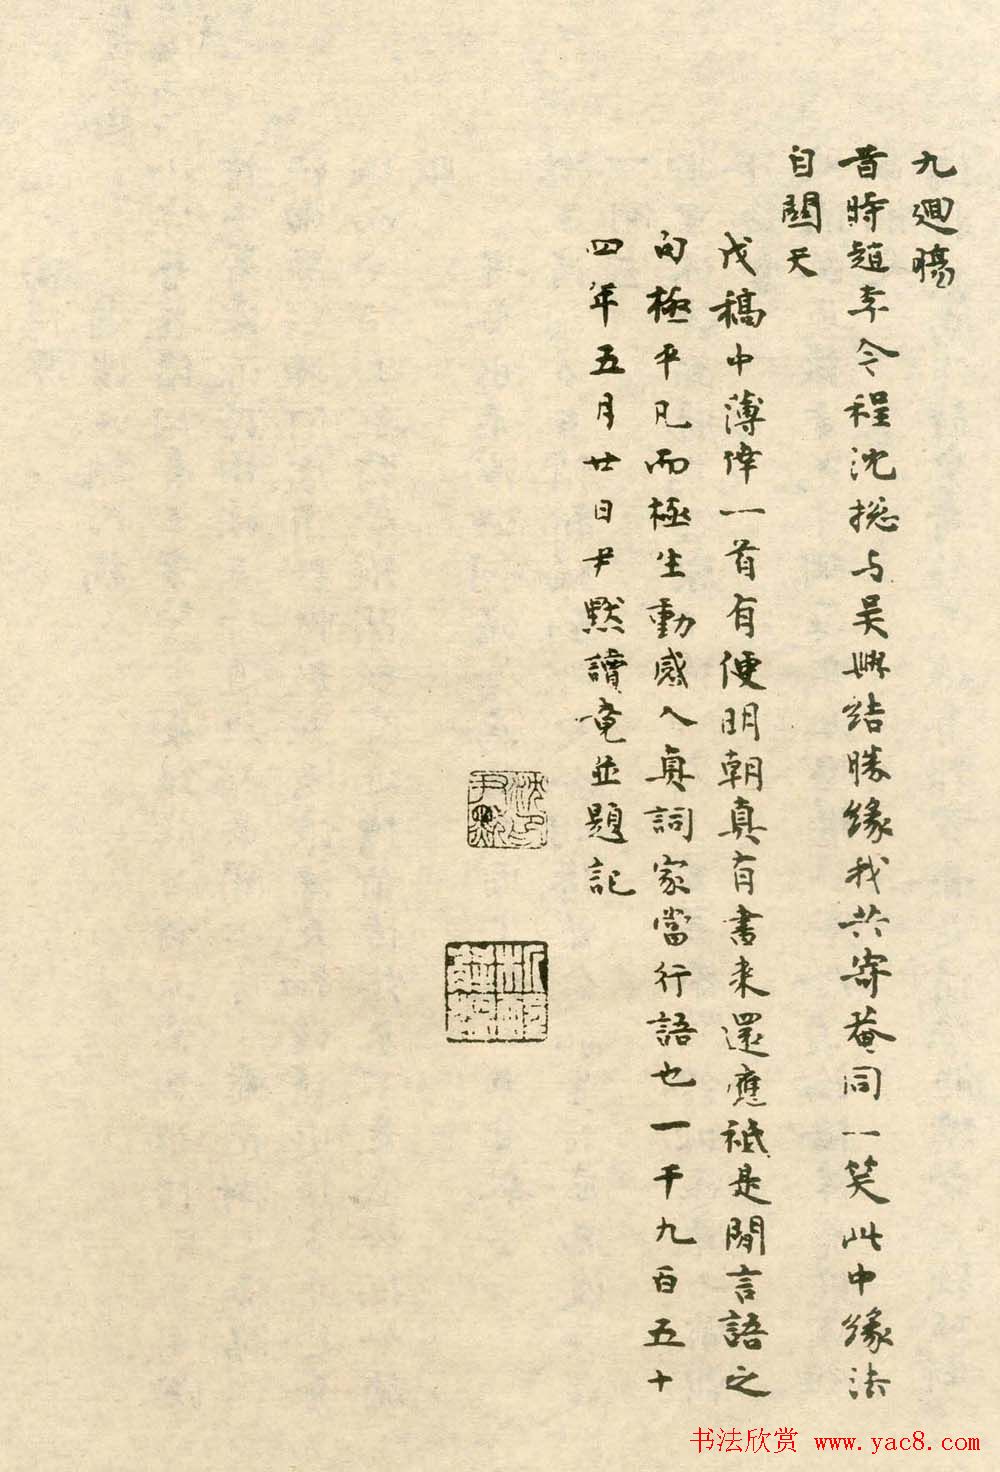 九迴腸
昔時趙李今程沈揔与吴興結勝緣我共寄菴同一笑此中緣法
自關天
戊稿中薄倖一首有便明朝真有書来還應祗是閒言語之
句極平凡而極生動感人真詞家當行語也一千九百五十
四年五月廿日尹默讀竟並題記
沈印
尹默
书法欣赏 www.yac8.com